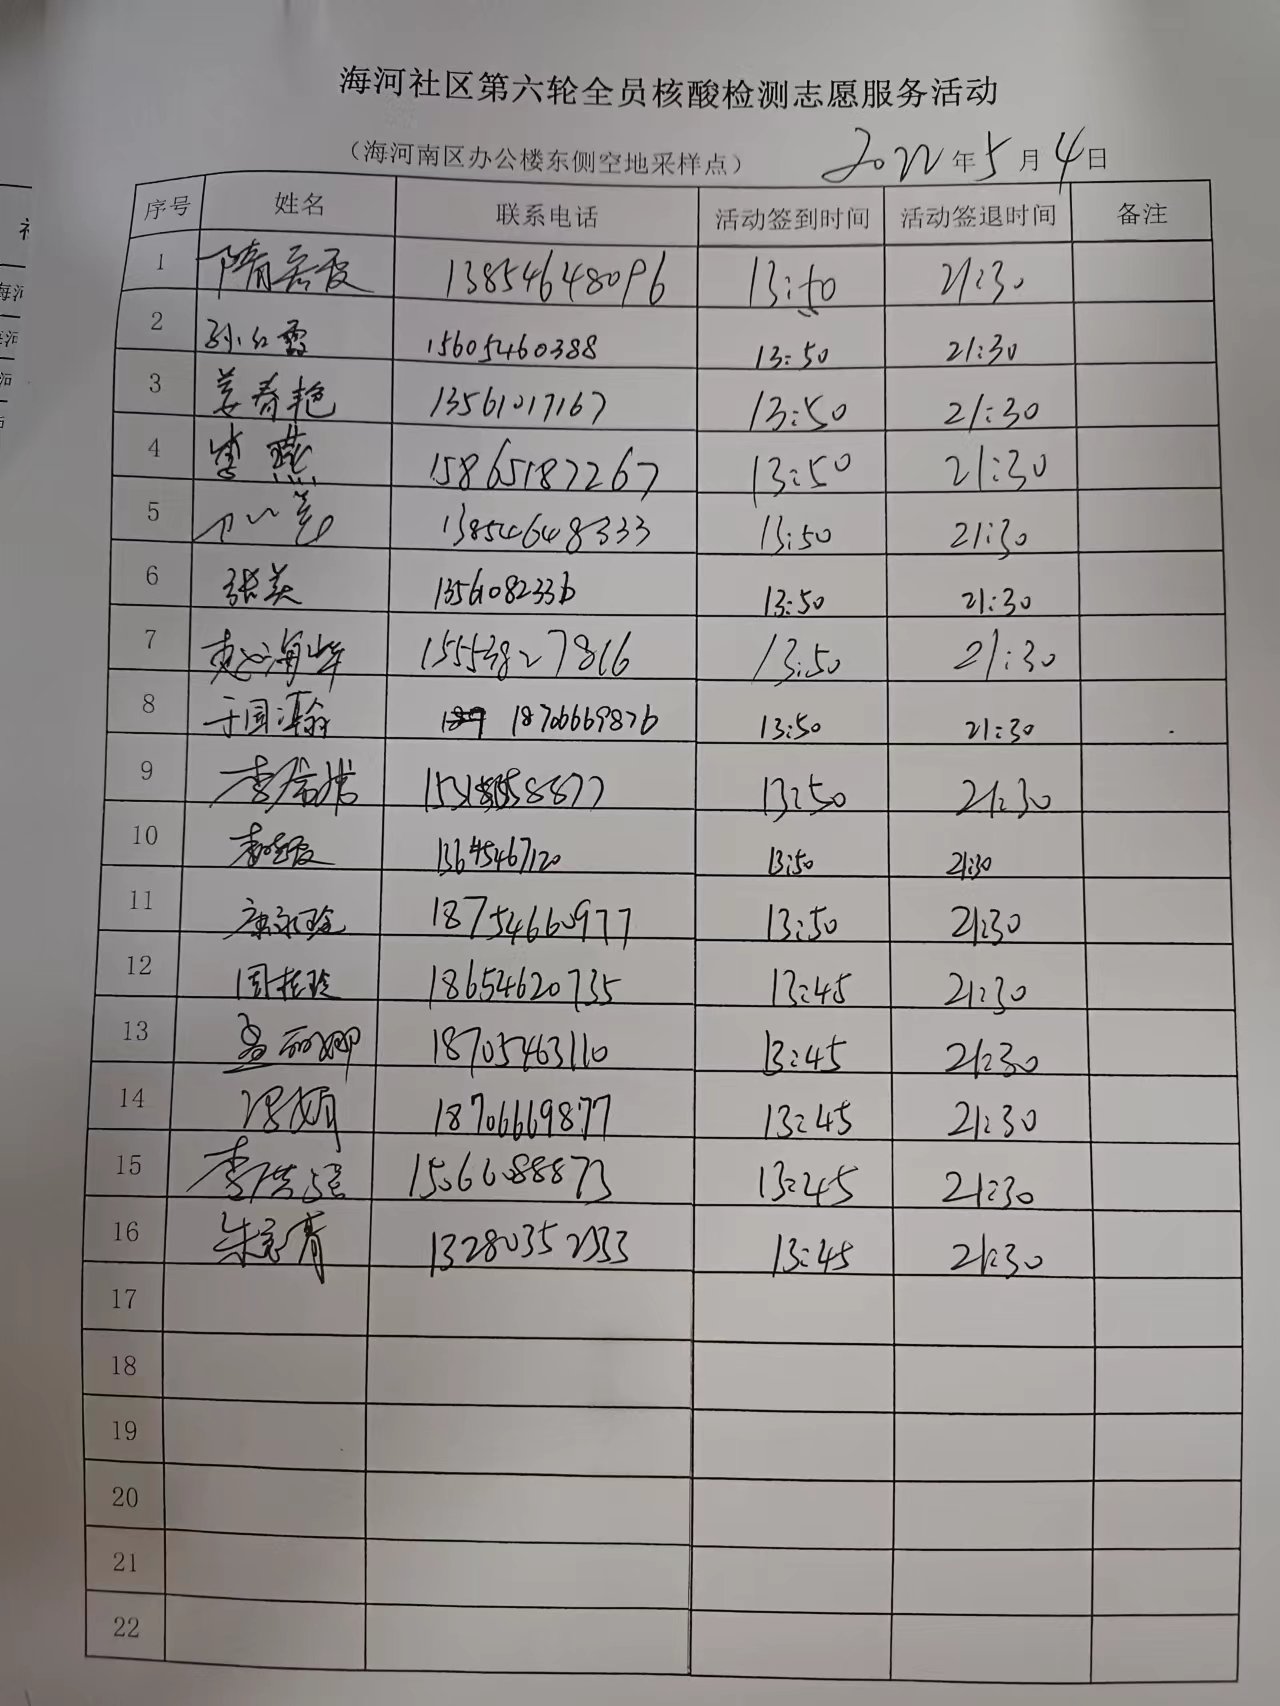 海河社区第六轮全员核酸检测志愿服务活动
（海河南区办公楼东侧空地采样点） 2022年5月4日
序号 姓名 联系电话 活动签到时间 活动签退时间 备注
1 隋 霞 13854648096 13:50 21:30
2 孙红霞 15605460388 13:50 21:30
3 姜春艳 13561017167 13:50 21:30
4 李燕 15865187267 13:50 21:30
5 13854648333 13:50 21:30
6 张美 13561082336 13:50 21:30
7 赵海燕 15553827816 13:50 21:30
8 于国瀚 18706669876 13:50 21:30
9 李 13:50 21:30
10 李晓霞 13645467120 13:50 21:30
11 康永玲 18754660977 13:50 21:30
12 周桂玲 18654620735 13:45 21:30
13 孟丽娜 18705463110 13:45 21:30
14 冯娟 18706669877 13:45 21:30
15 李洪强 15066088873 13:45 21:30
16 朱 青 13280352333 13:45 21:30
17
18
19
20
21
22